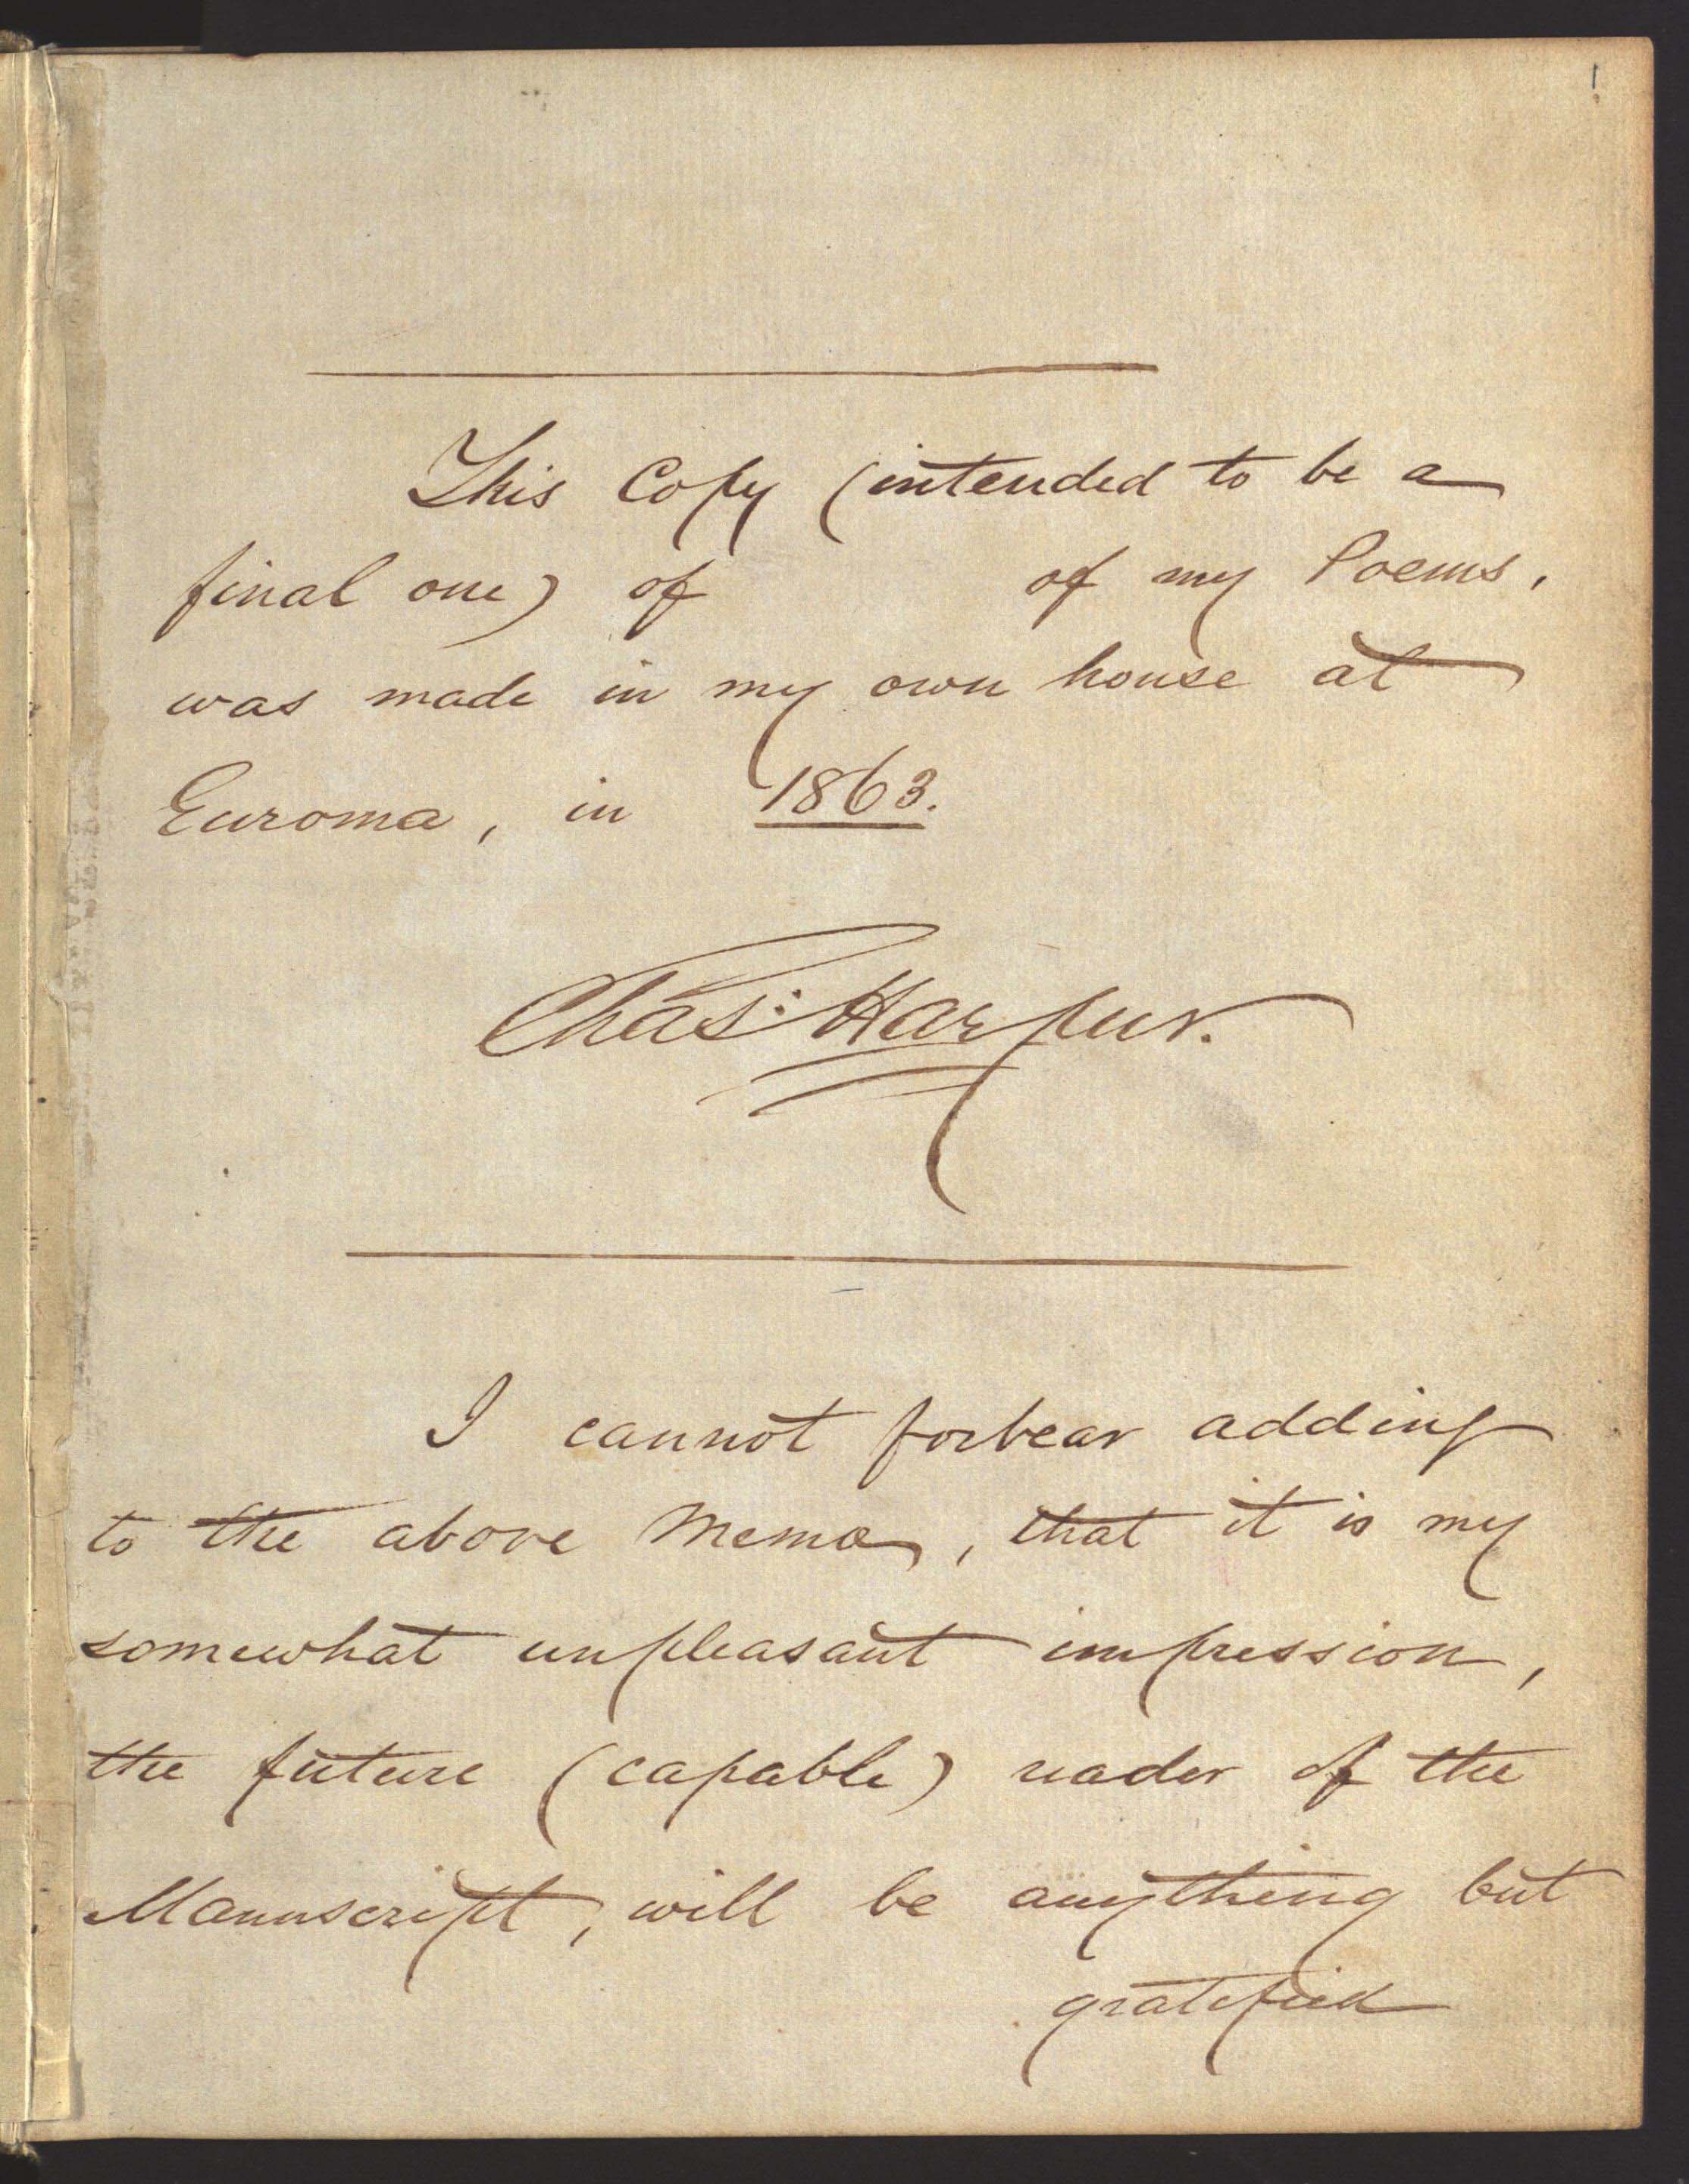 1
This Copy (intended to be a
final one) of of my Poems,
was made in my own house at
Euroma, in 1863.
Chas: Harpur.
I cannot forbear adding
to the above Memo, that it is my
somewhat unpleasant impression,
the future (capable) reader of the
Manuscript, will be anything but
gratified